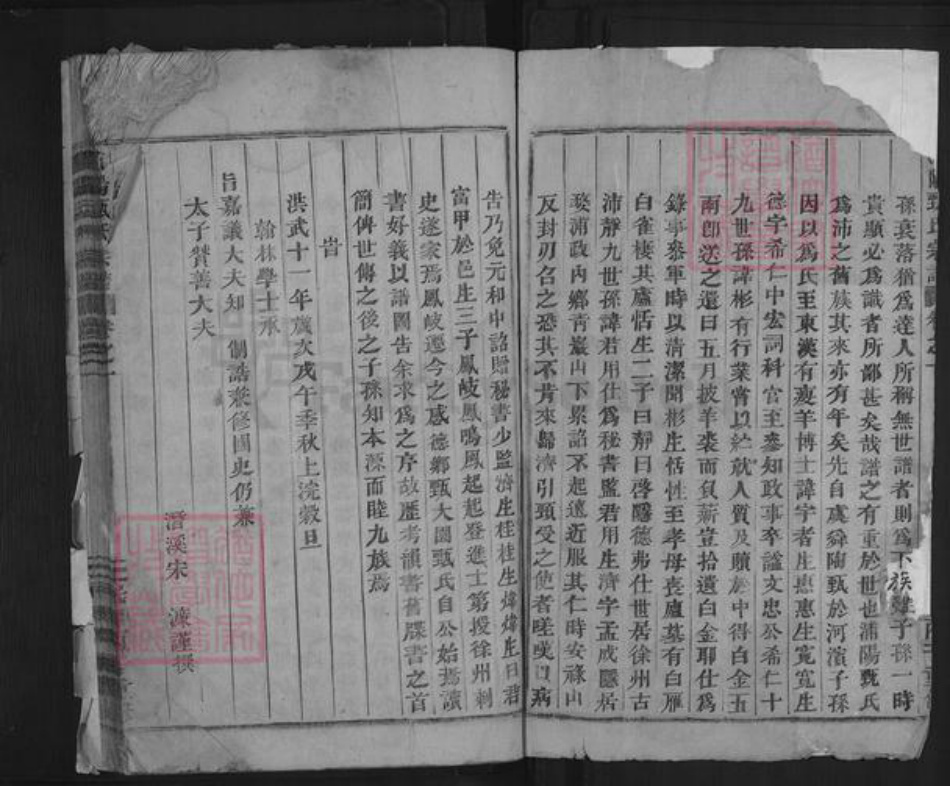 孫衰落猶爲達人所稱無世譜者則爲下族雖子孫一時
貴顯必爲識者所鄙甚矣哉譜之有重於世也浦陽甄氏
爲沛之舊族其來亦有年矣先自虞舜陶甄於河濱子孫
因以爲氏至東漢有瘦羊博士諱宇者生惠惠生寬寬生
德字希仁中宏詞科官至參知政事卒謚文忠公希仁十
九世孫諱彬有行業嘗以紵就人質及贖於中得白金五
兩卽送之還曰五月披羊裘而負薪豈拾遺白金耶仕爲
錄事參軍時以清潔聞彬生恬性至孝母喪廬墓有白雁
白雀棲其廬恬生二子曰靜曰啓隱德弗仕世居徐州古
沛靜九世孫諱君用仕爲秘書監君用生濟字孟成隱居
癸浦政內鄉青巖山下累詔不起遠近服其仁時安祿山
反封刃召之恐其不肯來歸濟引頸受之使者嗟嘆以病
告乃免元和中詔贈秘書少監濟生桂桂生煒煒生日君
富甲於邑生三子鳳岐鳳鳴鳳起起登進士第授徐州刺
史遂家焉鳳岐遷今之感德鄉甄大園甄氏自公始焉讀
書好義以譜圖告余求爲之序故歷考韻書舊牒書之首
簡俾世傳之後之子孫知本源而睦九族焉
旹
洪武十一年歲次戊午季秋上浣穀旦
翰林學士承
旨嘉議大夫知 制誥兼修國史仍兼
太子贊善大夫
潛溪宋 濂謹撰